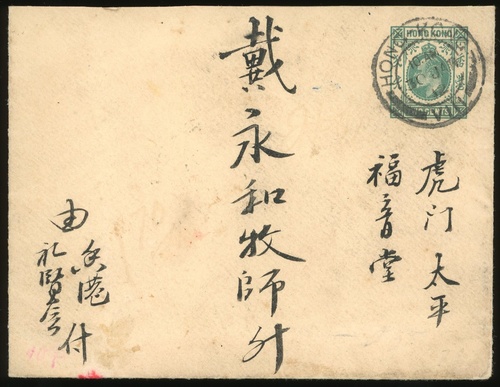 HONG KONG
HONG KONG
虎门太平
福音堂
戴永和牧師升
由香港
礼賢会付